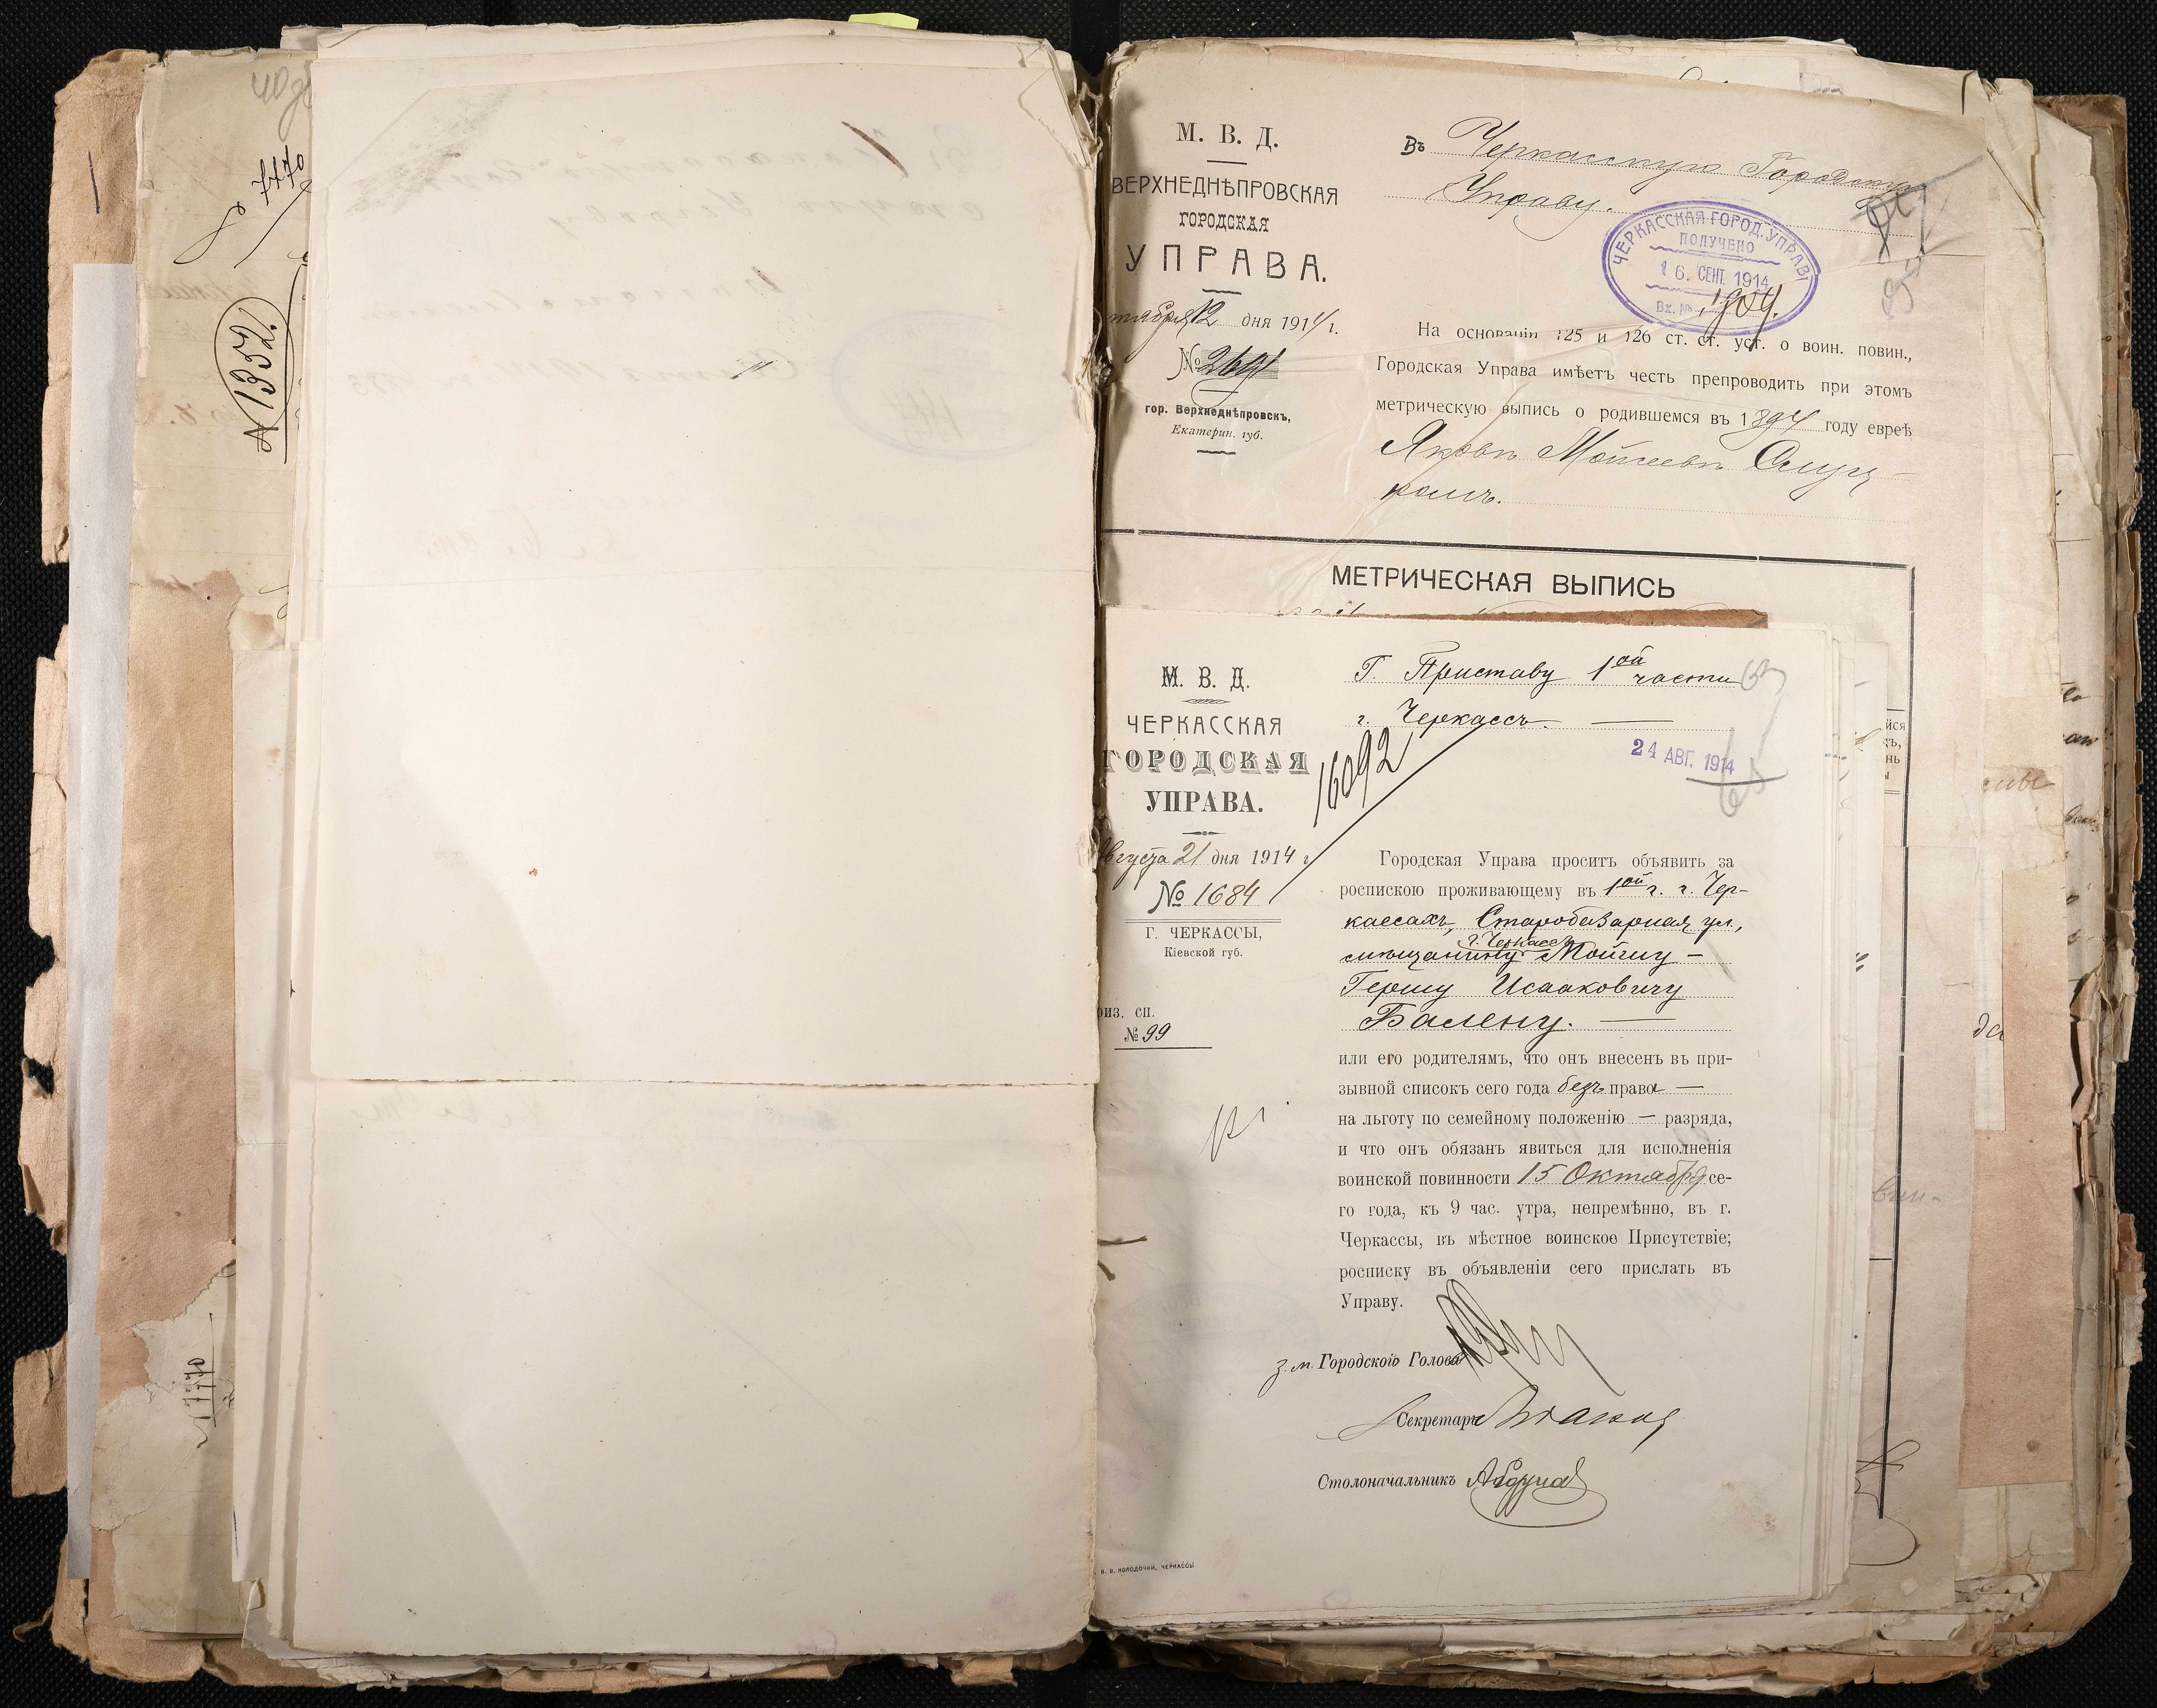 7770
№ 1352.
1770
М. В. Д.
ВЕРХНЕДНѢПРОВСКАЯ
ГОРОДСКАЯ
УПРАВА.
12 дня 1914 г.
№
гор. Верхнеднѣпровскъ,
Екатерин. губ.
Въ Черкасскую Городскую
Управу.
ЧЕРКАССКАЯ ГОРОД. УПРАВ
ПОЛУЧЕНО
16 СЕНТ. 1914
Вх. №
На основаніи 125 и 126 ст. ст. уст. о воин. повин.,
Городская Управа имѣетъ честь препроводить при этомъ
метрическую выпись о родившемся въ 1894 году евреѣ
Яковъ Мойсеевъ
МЕТРИЧЕСКАЯ ВЫПИСЬ
М. В. Д.
ЧЕРКАССКАЯ
ГОРОДСКАЯ
УПРАВА.
Августа 21 дня 1914 г.
№ 1684
Г. ЧЕРКАССЫ,
Кіевской губ.
риз. сп.
№ 99
16092
Г. Приставу 1ой части
г. Черкассъ.
24 АВГ. 1914
Городская Управа проситъ объявить за
роспискою проживающему въ 1ой ч. г. Чер-
кассахъ, Старобазарная ул.,
г. Черкассъ
мѣщанину Мойшу-
Гершу Исааковичу
Балену. —
или его родителямъ, что онъ внесенъ въ при-
зывной списокъ сего года безъ права —
на льготу по семейному положенію — разряда,
и что онъ обязанъ явиться для исполненія
воинской повинности 15 Октября се-
го года, къ 9 час. утра, непремѣнно, въ г.
Черкассы, въ мѣстное воинское Присутствіе;
росписку въ объявленіи сего прислать въ
Управу.
з. м. Городского Головы
Секретарь
Столоначальникъ
В. В. КОЛОДОЧКИ, ЧЕРКАССЫ